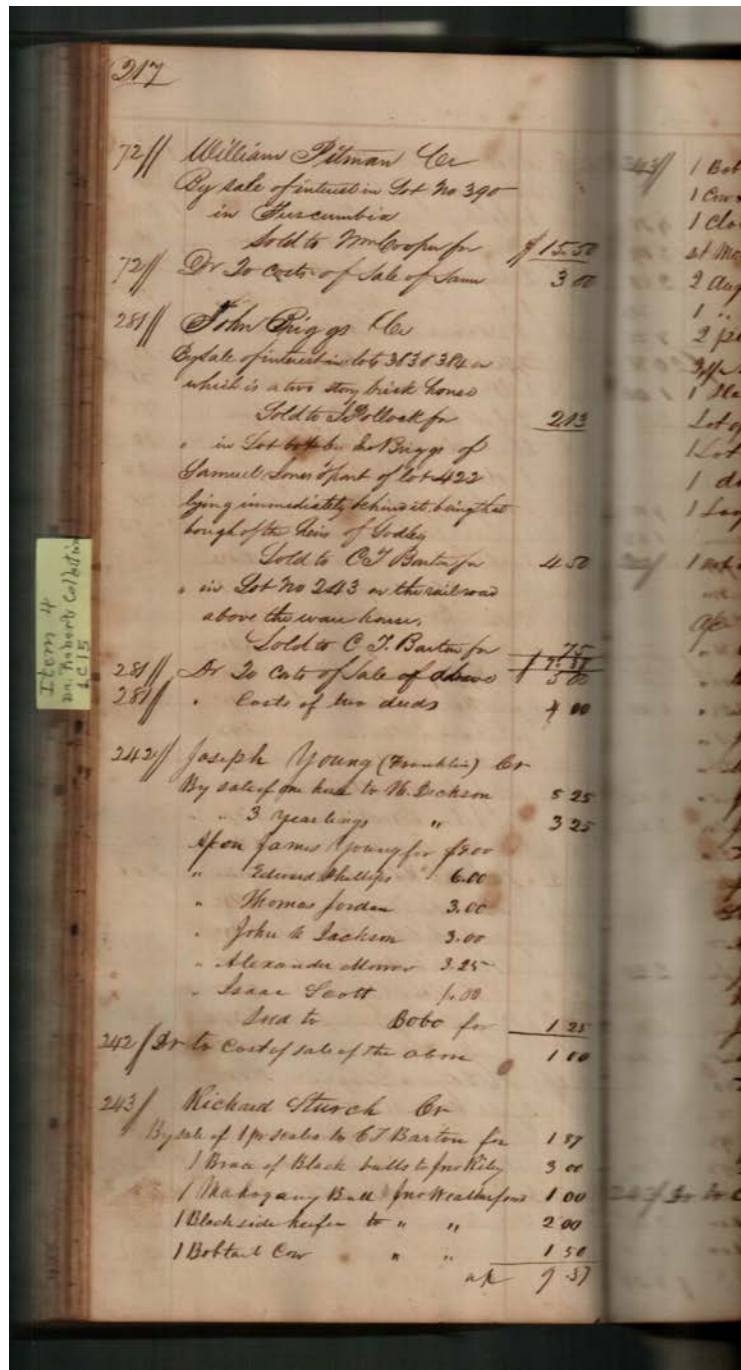 217
72// William Pitman Cr
By sale of interest in Lot No 390
in Tuscumbia
Sold to Wm Cooper for $15.50
72// Dr To costs of Sale of Same 3 00
281// John Briggs Cr
By Sale of interest in lots 383 & 384 on
which is a two story brick house
Sold to J Pollock for 213
" in Lot by Jno Briggs of
Samuel Jones & part of lot 422
lying immediately behind it being that
bough of the Heirs of Godley
Sold to C T Barton for 450
" in Lot No 243 on the rail road
above the ware house,
Sold to C T. Barton for 75
281// Dr To Costs of Sale of above 5 00
281// " Costs of two deeds 4 00
242// Joseph Young (Franklin) Cr
By sale of one to H. Dickson 5 25
" " 3 Yearlings " 3 25
on James Young for
" Edward Phillips 6.00
" Thomas Jordan 3.00
" John Jackson 3.00
" Alexander 3.25
" Isaac Scott
Sold to Bobo for 1 25
242/ Dr to Cost of sale of the above 1 00
243/ Richard Sturch Cr
By sale of 1 pr scales to C T Barton for 1 87
1 Brace of Black bulls to Jno Riley 3 00
1 Mahogany Bull Jno Weatherford 1 00
1 Black side heifer to " " 2 00
1 Bobtail Cow " " 1 50
9.37
Item 4
Dr. Roberts Collection
LC15
243//
1 Bob
1 Cow
1 Clo
2 Aug
1 "
Lot of
1 Lot